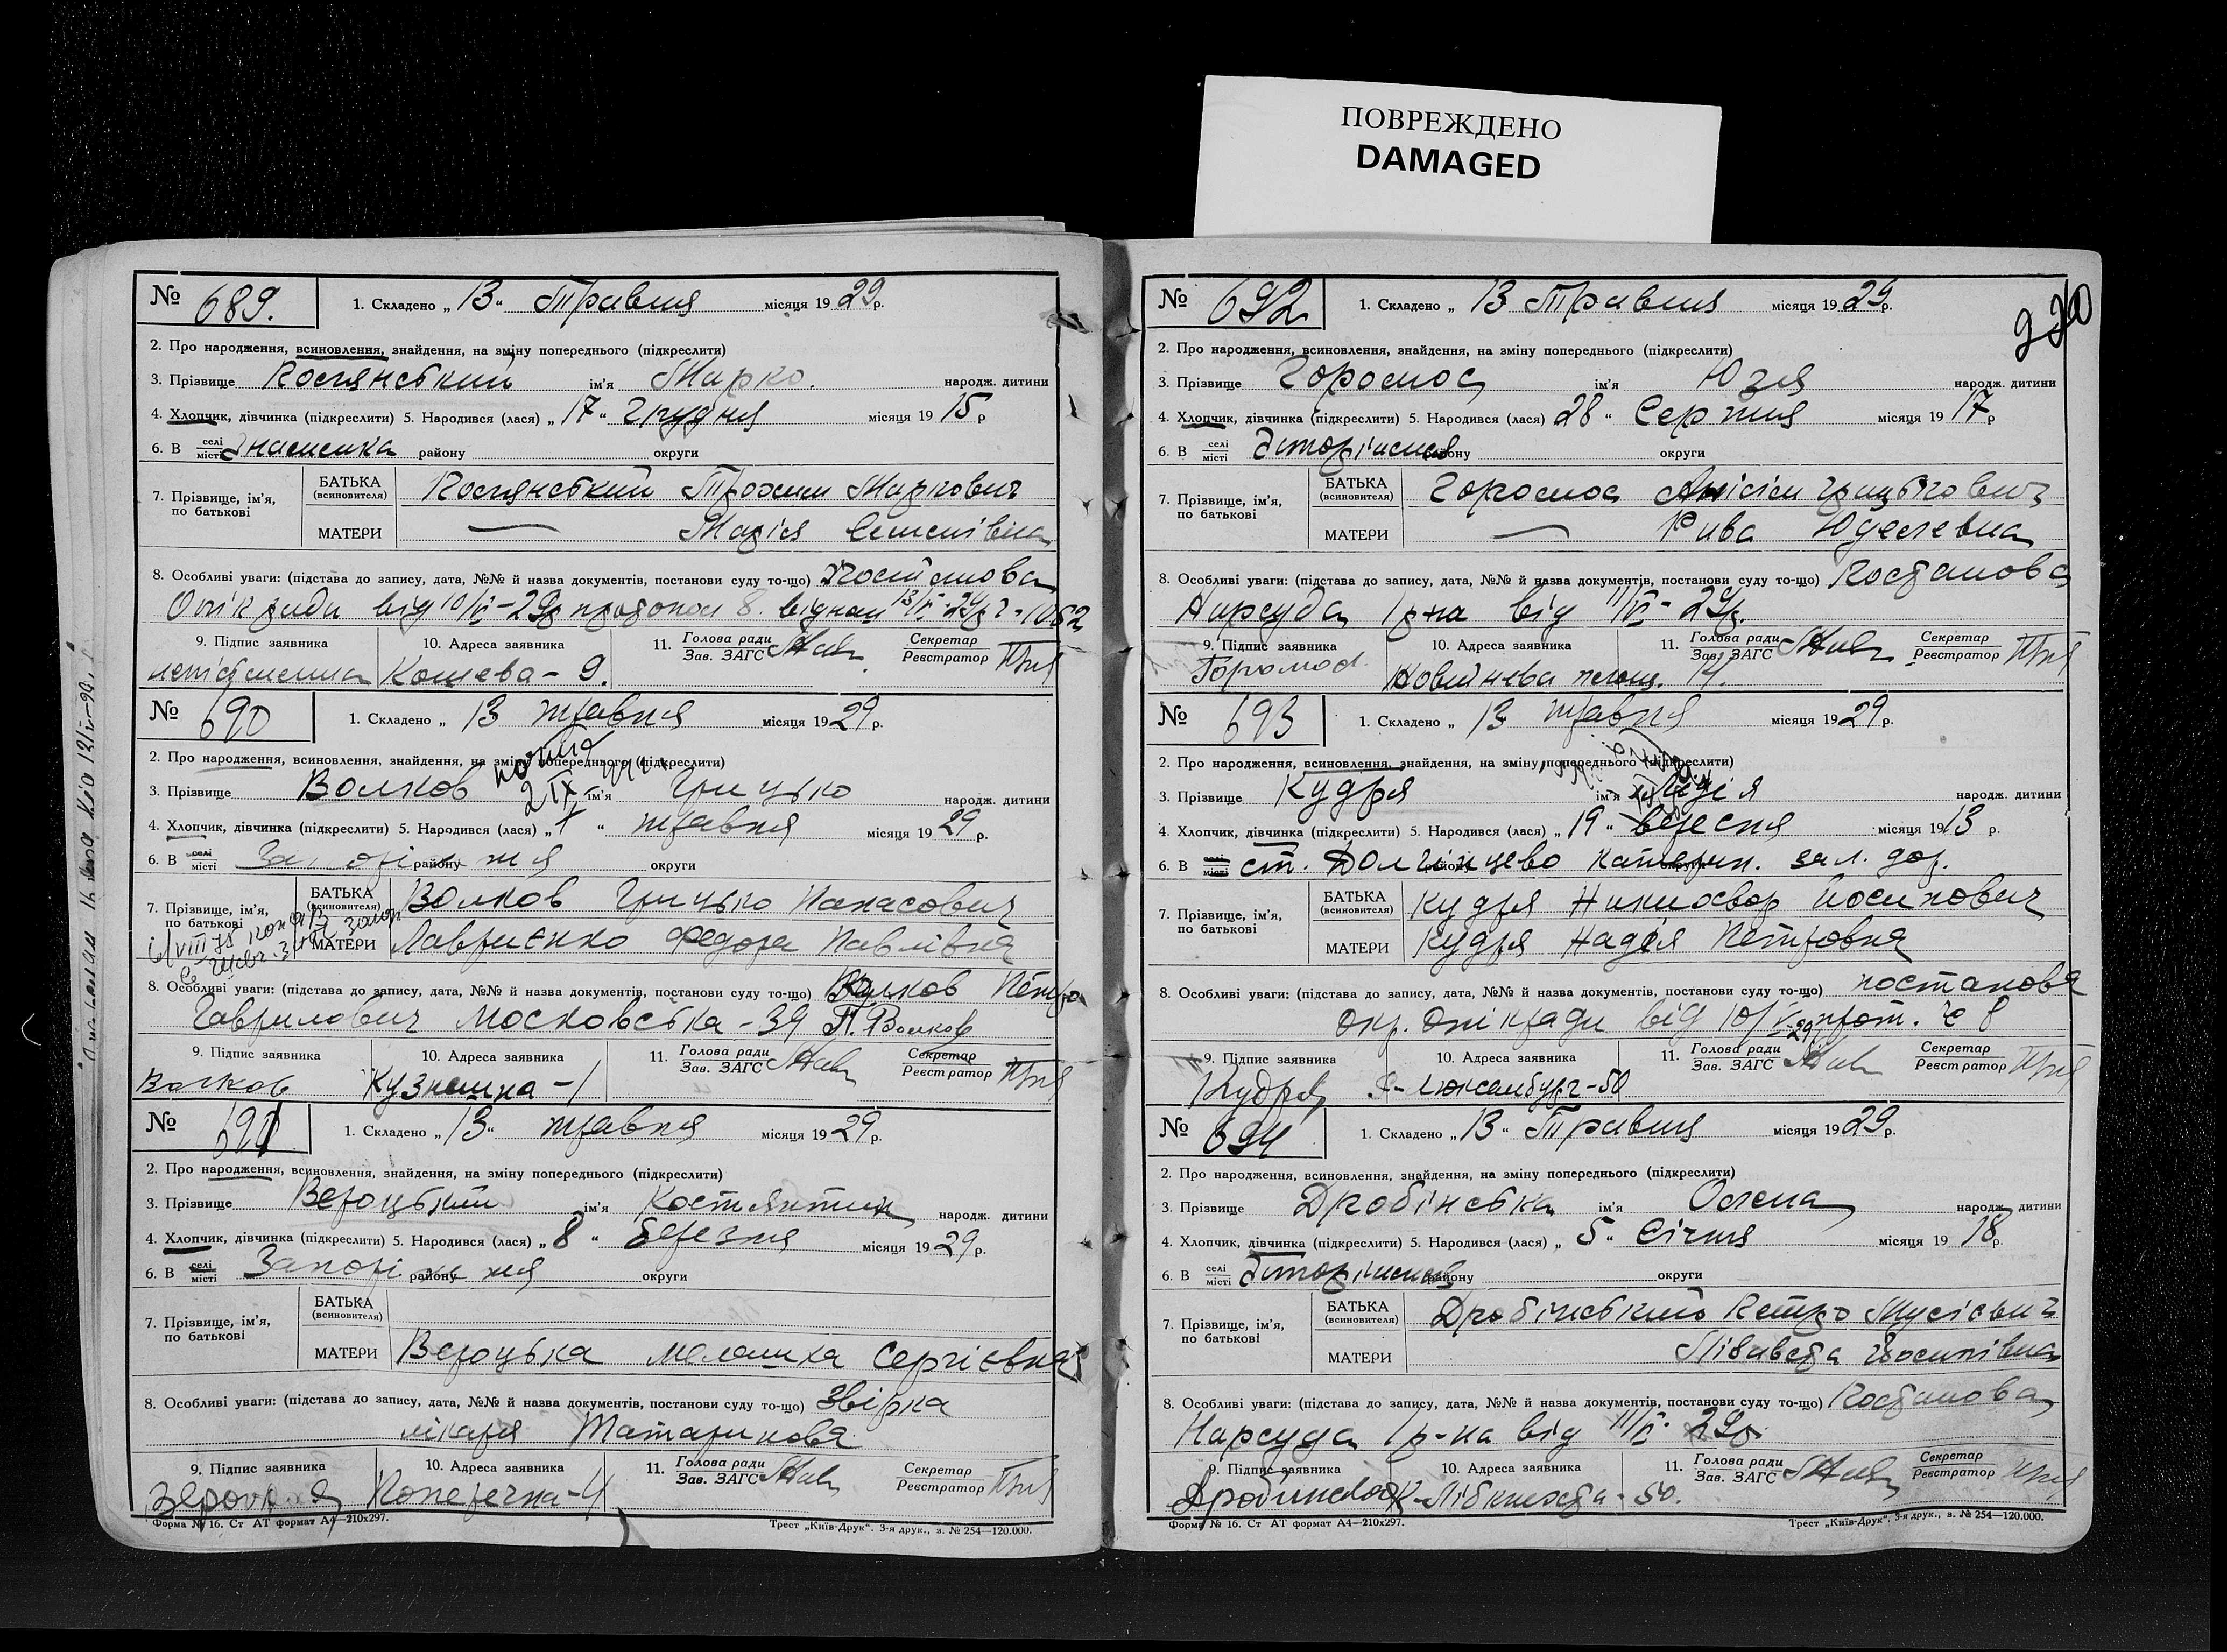 ПОВРЕЖДЕНО
DAMAGED
№ 689.
1. Складено „ 13 “ Травня місяця 19 29 р.
2. Про народження, всиновлення, знайдення, на зміну попереднього (підкреслити)
3. Прізвище ім'я Марко. народж. дитини
4. Хлопчик, дівчинка (підкреслити) 5. Народився (лася) „ 17 “ Грудня місяця 19 15 р
6. В селі місті Знаменка району округи
7. Прізвище, ім'я, по батькові
БАТЬКА (всиновителя) Трохим Маркович
МАТЕРИ — Марія Семенівна
8. Особливі уваги: (підстава до запису, дата, №№ й назва документів, постанови суду то-що) Постанова
Опікради від 10/V-29р протокол 8.
9. Підпис заявника 10. Адреса заявника 11. Голова ради Зав. ЗАГС Секретар Реєстратор
9.
№ 690
1. Складено „ 13 травня місяця 19 29 р.
2. Про народження, всиновлення, знайдення, на зміну попереднього (підкреслити)
3. Прізвище Волков ім'я Грицько народж. дитини
4. Хлопчик, дівчинка (підкреслити) 5. Народився (лася) „ “ травня місяця 19 29 р.
6. В селі місті Запоріжжя району округи
7. Прізвище, ім'я, по батькові
БАТЬКА (всиновителя) Волков Грицько Панасович
МАТЕРИ Лавриєнко Федора Павлівна
8. Особливі уваги: (підстава до запису, дата, №№ й назва документів, постанови суду то-що) Волков Петро
Гаврилович Московська - 39 П. Волков
9. Підпис заявника 10. Адреса заявника 11. Голова ради Зав. ЗАГС Секретар Реєстратор
Волков
№ 691
1. Складено „ 13 “ травня місяця 19 29 р.
2. Про народження, всиновлення, знайдення, на зміну попереднього (підкреслити)
3. Прізвище Вероцький ім'я Костянтин народж. дитини
4. Хлопчик, дівчинка (підкреслити) 5. Народився (лася) „ 8 “ березня місяця 19 29 р.
6. В селі місті Запоріжжя району округи
7. Прізвище, ім'я, по батькові
БАТЬКА (всиновителя)
МАТЕРИ Вероцька Мелашка Сергієвна
8. Особливі уваги: (підстава до запису, дата, №№ й назва документів, постанови суду то-що) Звірка
лікаря Татаринова
9. Підпис заявника 10. Адреса заявника 11. Голова ради Зав. ЗАГС Секретар Реєстратор
Поперечна - 4
Форма № 16. Ст АТ формат А4—210х297. Трест „Київ-Друк“. 3-я друк., з. № 254—120.000.
220
№ 692
1. Складено „ 13 Травня місяця 19 29 р.
2. Про народження, всиновлення, знайдення, на зміну попереднього (підкреслити)
3. Прізвище ім'я Юзя народж. дитини
4. Хлопчик, дівчинка (підкреслити) 5. Народився (лася) 28 “ Серпня місяця 19 17 р
6. В селі місті району округи
7. Прізвище, ім'я, по батькові
БАТЬКА (всиновителя)
МАТЕРИ — Рива
8. Особливі уваги: (підстава до запису, дата, №№ й назва документів, постанови суду то-що) Постанова
Нарсуда 1 р-на від 11/V-29р.
9. Підпис заявника 10. Адреса заявника 11. Голова ради Зав. ЗАГС Секретар Реєстратор
№ 693
1. Складено „ 13 травня місяця 19 29 р.
2. Про народження, всиновлення, знайдення, на зміну попереднього (підкреслити)
3. Прізвище Кудря ім'я народж. дитини
4. Хлопчик, дівчинка (підкреслити) 5. Народився (лася) „ 19 “ вересня місяця 19 13 р.
6. В селі місті ст. Долгінцево Катерин. зал. дор. району округи
7. Прізвище, ім'я, по батькові
БАТЬКА (всиновителя) Кудря Никифор Йосипович
МАТЕРИ Кудря Надія Петровна
8. Особливі уваги: (підстава до запису, дата, №№ й назва документів, постанови суду то-що) постанова
окр. опікради від 10/V-29 прот. ч 8
9. Підпис заявника 10. Адреса заявника 11. Голова ради Зав. ЗАГС Секретар Реєстратор
Кудря Р-Люксембург-50
№ 694
1. Складено „ 13 “ Травня місяця 19 29 р.
2. Про народження, всиновлення, знайдення, на зміну попереднього (підкреслити)
3. Прізвище Дробінська ім'я Олена народж. дитини
4. Хлопчик, дівчинка (підкреслити) 5. Народився (лася) „ 5 “ Січня місяця 19 18 р.
6. В селі місті району округи
7. Прізвище, ім'я, по батькові
БАТЬКА (всиновителя) Дробінський Петро Мусієвич
МАТЕРИ Лізавета Йосипівна
8. Особливі уваги: (підстава до запису, дата, №№ й назва документів, постанови суду то-що) Постанова
Нарсуда 1 р-на від 11/V-29р.
9. Підпис заявника 10. Адреса заявника 11. Голова ради Зав. ЗАГС Секретар Реєстратор
К-Лібкнехта - 50.
Форма № 16. Ст АТ формат А4—210х297. Трест „Київ-Друк“. 3-я друк., з. № 254—120.000.